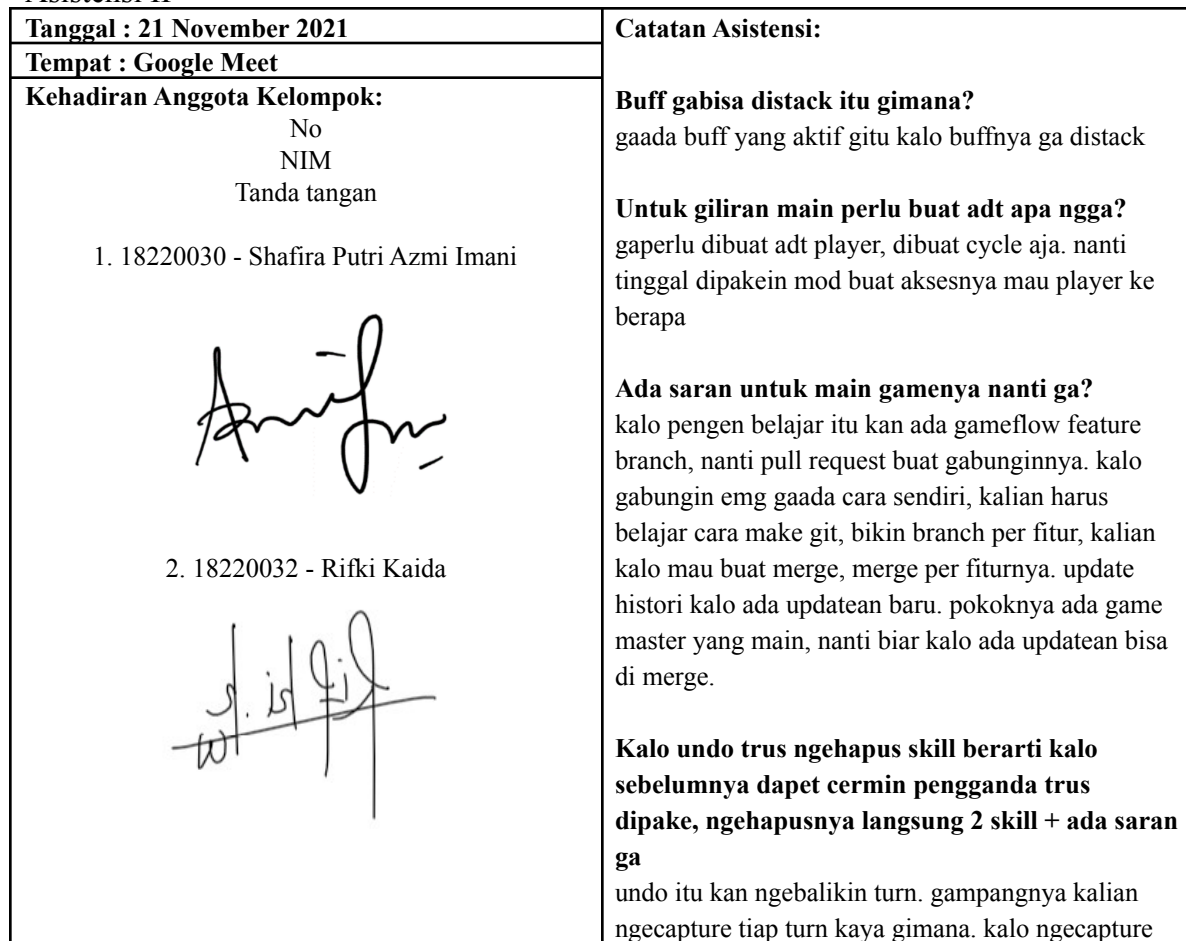 Tanggal : 21 November 2021
Tempat : Google Meet
Kehadiran Anggota Kelompok:
No
NIM
Tanda tangan
1. 18220030 - Shafira Putri Azmi Imani
2. 18220032 - Rifki Kaida
Catatan Asistensi:
Buff gabisa distack itu gimana?
gaada buff yang aktif gitu kalo buffnya ga distack
Untuk giliran main perlu buat adt apa ngga?
gaperlu dibuat adt player, dibuat cycle aja. nanti
tinggal dipakein mod buat aksesnya mau player ke
berapa
Ada saran untuk main gamenya nanti ga?
kalo pengen belajar itu kan ada gameflow feature
branch, nanti pull request buat gabunginnya. kalo
gabungin emg gaada cara sendiri, kalian harus
belajar cara make git, bikin branch per fitur, kalian
kalo mau buat merge, merge per fiturnya. update
histori kalo ada updatean baru. pokoknya ada game
master yang main, nanti biar kalo ada updatean bisa
di merge.
Kalo undo trus ngehapus skill berarti kalo
sebelumnya dapet cermin pengganda trus
dipake, ngehapusnya langsung 2 skill + ada saran
ga
undo itu kan ngebalikin turn. gampangnya kalian
ngecapture tiap turn kaya gimana. kalo ngecapture